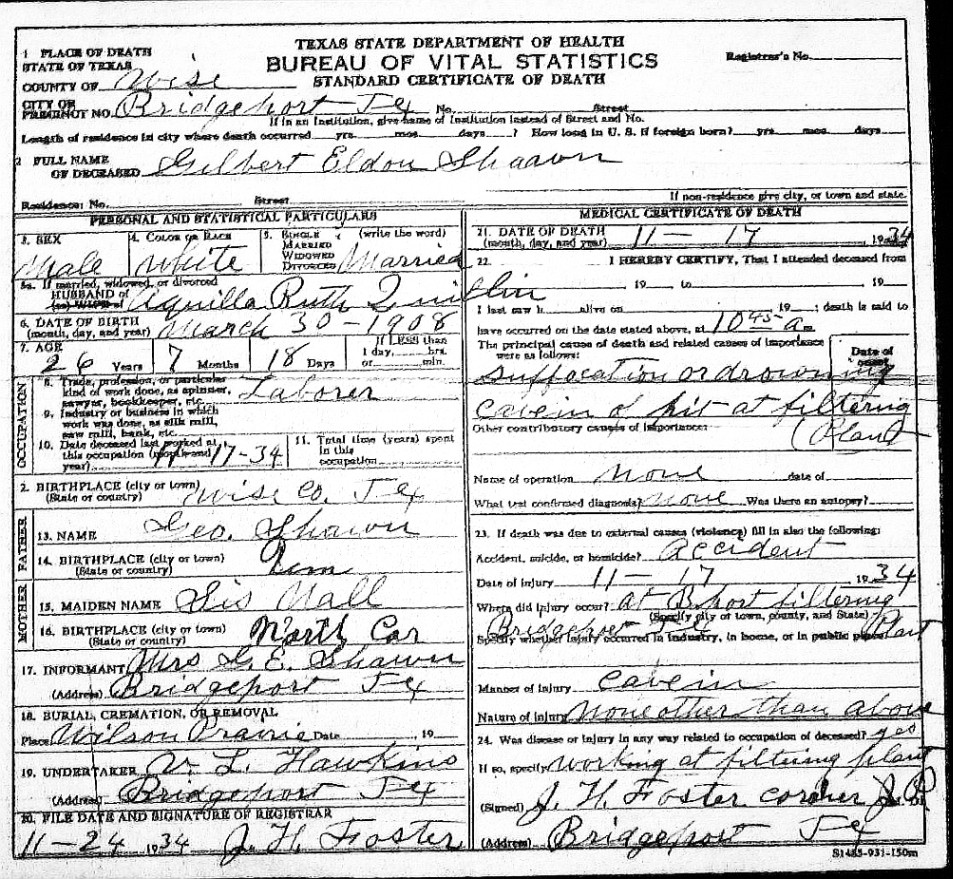 TEXAS STATE DEPARTMENT OF HEALTH
BUREAU OF VITAL STATISTICS
STANDARD CERTIFICATE OF DEATH
Registrar's No.
1 PLACE OF DEATH
STATE OF TEXAS
COUNTY OF Wise
CITY OF
PRECINCT NO. Bridgeport Tex No. Street
If in an Institution, give name of Institution instead of Street and No.
Length of residence in city where death occurred yrs. mos. days ? How long in U. S. if foreign born? yrs. mos. days
2 FULL NAME
OF DECEASED Gilbert Eldon Shawn
Residence: No. Street If non-residence give city, or town and state.
PERSONAL AND STATISTICAL PARTICULARS
3. SEX Male
4. COLOR OR RACE White
5. SINGLE (write the word)
MARRIED
WIDOWED
DIVORCED Married
5a. If married, widowed, or divorced
HUSBAND of
(or) WIFE of Aquilla Ruth
6. DATE OF BIRTH
(month, day, and year) March 30 - 1908
7. AGE 26 Years 7 Months 18 Days
If LESS than
1 day, hrs.
or min.
OCCUPATION
8. Trade, profession, or particular
kind of work done, as spinner,
sawyer, bookkeeper, etc. Laborer
9. Industry or business in which
work was done, as silk mill,
saw mill, bank, etc.
10. Date deceased last worked at
this occupation (month and
year) 11 17-34
11. Total time (years) spent
in this
occupation
2. BIRTHPLACE (city or town)
(State or country) Wise Co. Tex
FATHER
13. NAME Geo. Shawn
14. BIRTHPLACE (city or town)
(State or country)
MOTHER
15. MAIDEN NAME Sis Nall
16. BIRTHPLACE (city or town)
(State or country) North Car
17. INFORMANT Mrs G. E. Shawn
(Address) Bridgeport Tex
18. BURIAL, CREMATION, OR REMOVAL
Place Wilson Prairie Date 19
19. UNDERTAKER V. L. Hawkins
(Address) Bridgeport Tex
20. FILE DATE AND SIGNATURE OF REGISTRAR
11-24 1934 J. H. Foster
MEDICAL CERTIFICATE OF DEATH
21. DATE OF DEATH
(month, day, and year) 11 - 17 1934
22. I HEREBY CERTIFY, That I attended deceased from
19 to 19
I last saw h alive on 19 ; death is said to
have occurred on the date stated above, at 10 45 a.
The principal cause of death and related causes of importance
were as follows: Date of
onset
Suffocation or drowning
cavein of pit at filtering
Other contributory causes of importance: (Plant
Name of operation none date of
What test confirmed diagnosis? none Was there an autopsy?
23. If death was due to external causes (violence) fill in also the following:
Accident, suicide, or homicide? Accident
Date of injury 11 - 17 1934
Where did injury occur? at Bport filtering
(Specify city or town, county, and State)
Bridgeport Tex Plant
Specify whether injury occurred in industry, in home, or in public place.
Manner of injury cavein
Nature of injury None other than above
24. Was disease or injury in any way related to occupation of deceased? yes
If so, specify working at filtering plant
(Signed) J. H. Foster coroner J. P.
(Address) Bridgeport Tex
S1485-931-150m